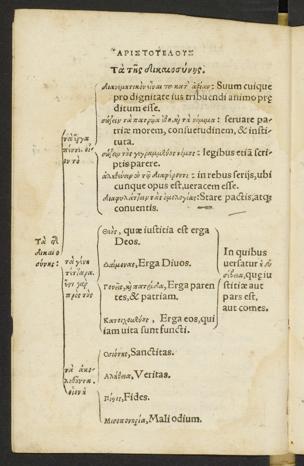 ἈΡΙΣΤΟΤΕΛΟΥΣ
Τὰ τῆς δικαιοσύνης.
Διανεμητικὸν εἶναι τοῦ κατ᾽ ἀξίαν: Suum cuique
pro dignitate ius tribuendi animo prę
ditum esse.
σώζειν τὰ πάτρια ἤθη καὶ τὰ νόμιμα: seruare pa-
triæ morem, consuetudinem, & insti-
tuta.
σώζειν τοὺς γεγραμμένους νόμους: legibus etiã scri-
ptis parere.
ἀληθεύειν ἐν τῷ διαφέροντι: in rebus serijs, ubi
cunque opus est, ueracem esse.
διαφυλάττειν τὰς ὁμολογίας: Stare pactis, atqꝫ
conuentis.
τὰ ἔργα
Τὰ δὲ
δικαιο
σύνης:
Θεός, quæ iustitia est erga
Deos.
Δαίμονας, Erga Diuos.
Γονεῖς, καὶ πατρίδα, Erga paren
tes, & patriam.
Κατοιχομένους. Erga eos, qui
iam uita sunt functi.
In quibus
uersatur εὐσέ
βεια, quę iu
stitiæ aut
pars est,
aut comes.
τὰ γένη
τέτταρα
πρὸς τοὺς
Ὁσιότης, Sanctitas.
Ἀλήθεια, Veritas.
Πίστις, Fides.
Μισοπονηρία, Mali odium.
τὰ ἀκο-
λουθοῦντα